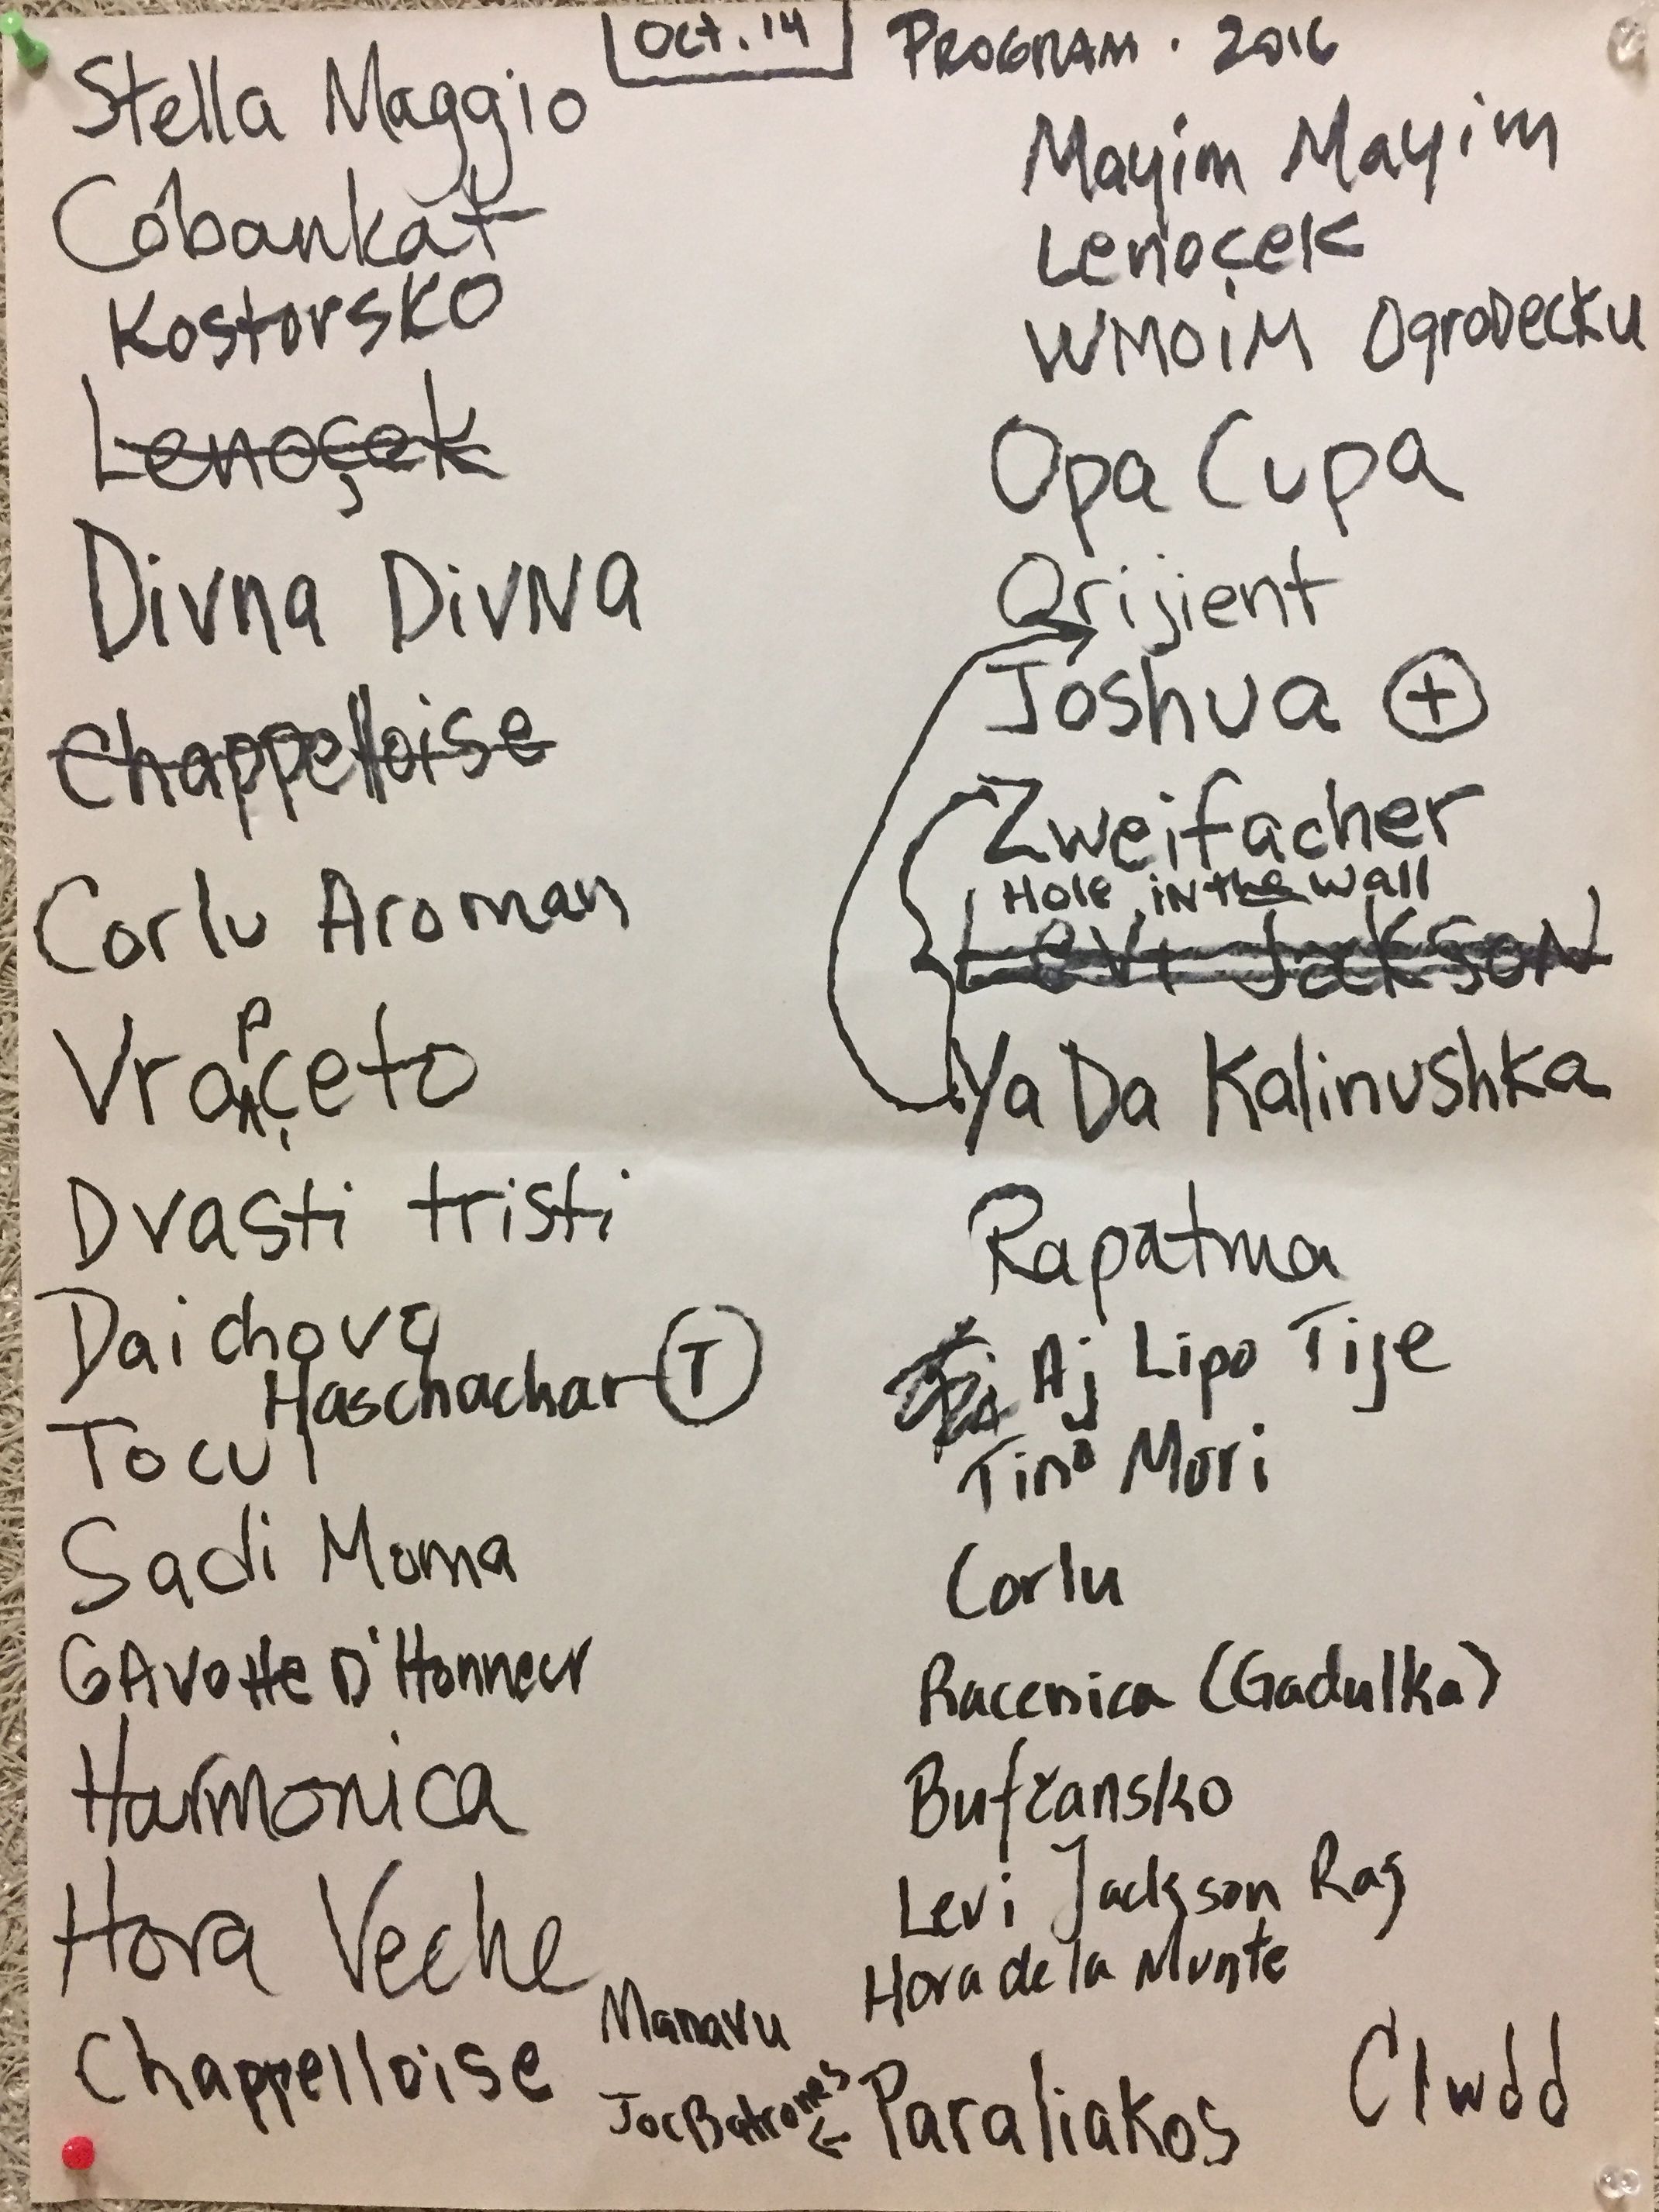 Oct. 14 PROGRAM . 2016
Stella Maggio
Cóbankat
Kostorsko
Lenoçek
Divna Divna
Chappelloise
Corlu Aroman
Vrapçeto
Dvasti tristi
Daichovo
Haschachar T
Tocul
Sadi Moma
GAvotte D'Honneur
Harmonica
Hora Veche
Chappelloise
Manavu
Joc Batranes
Mayim Mayim
Lenoçek
WMOiM OgroDecku
Opa Cupa
Orijient
Joshua +
Zweifacher
Hole in the Wall
Levi Jackson
Ya Da Kalinushka
Rapatma
Aj Lipo Tije
Tino Mori
Corlu
Racenica (Gadulka)
Bufčansko
Levi Jackson Rag
Hora de la Munte
Paraliakos
Clwdd